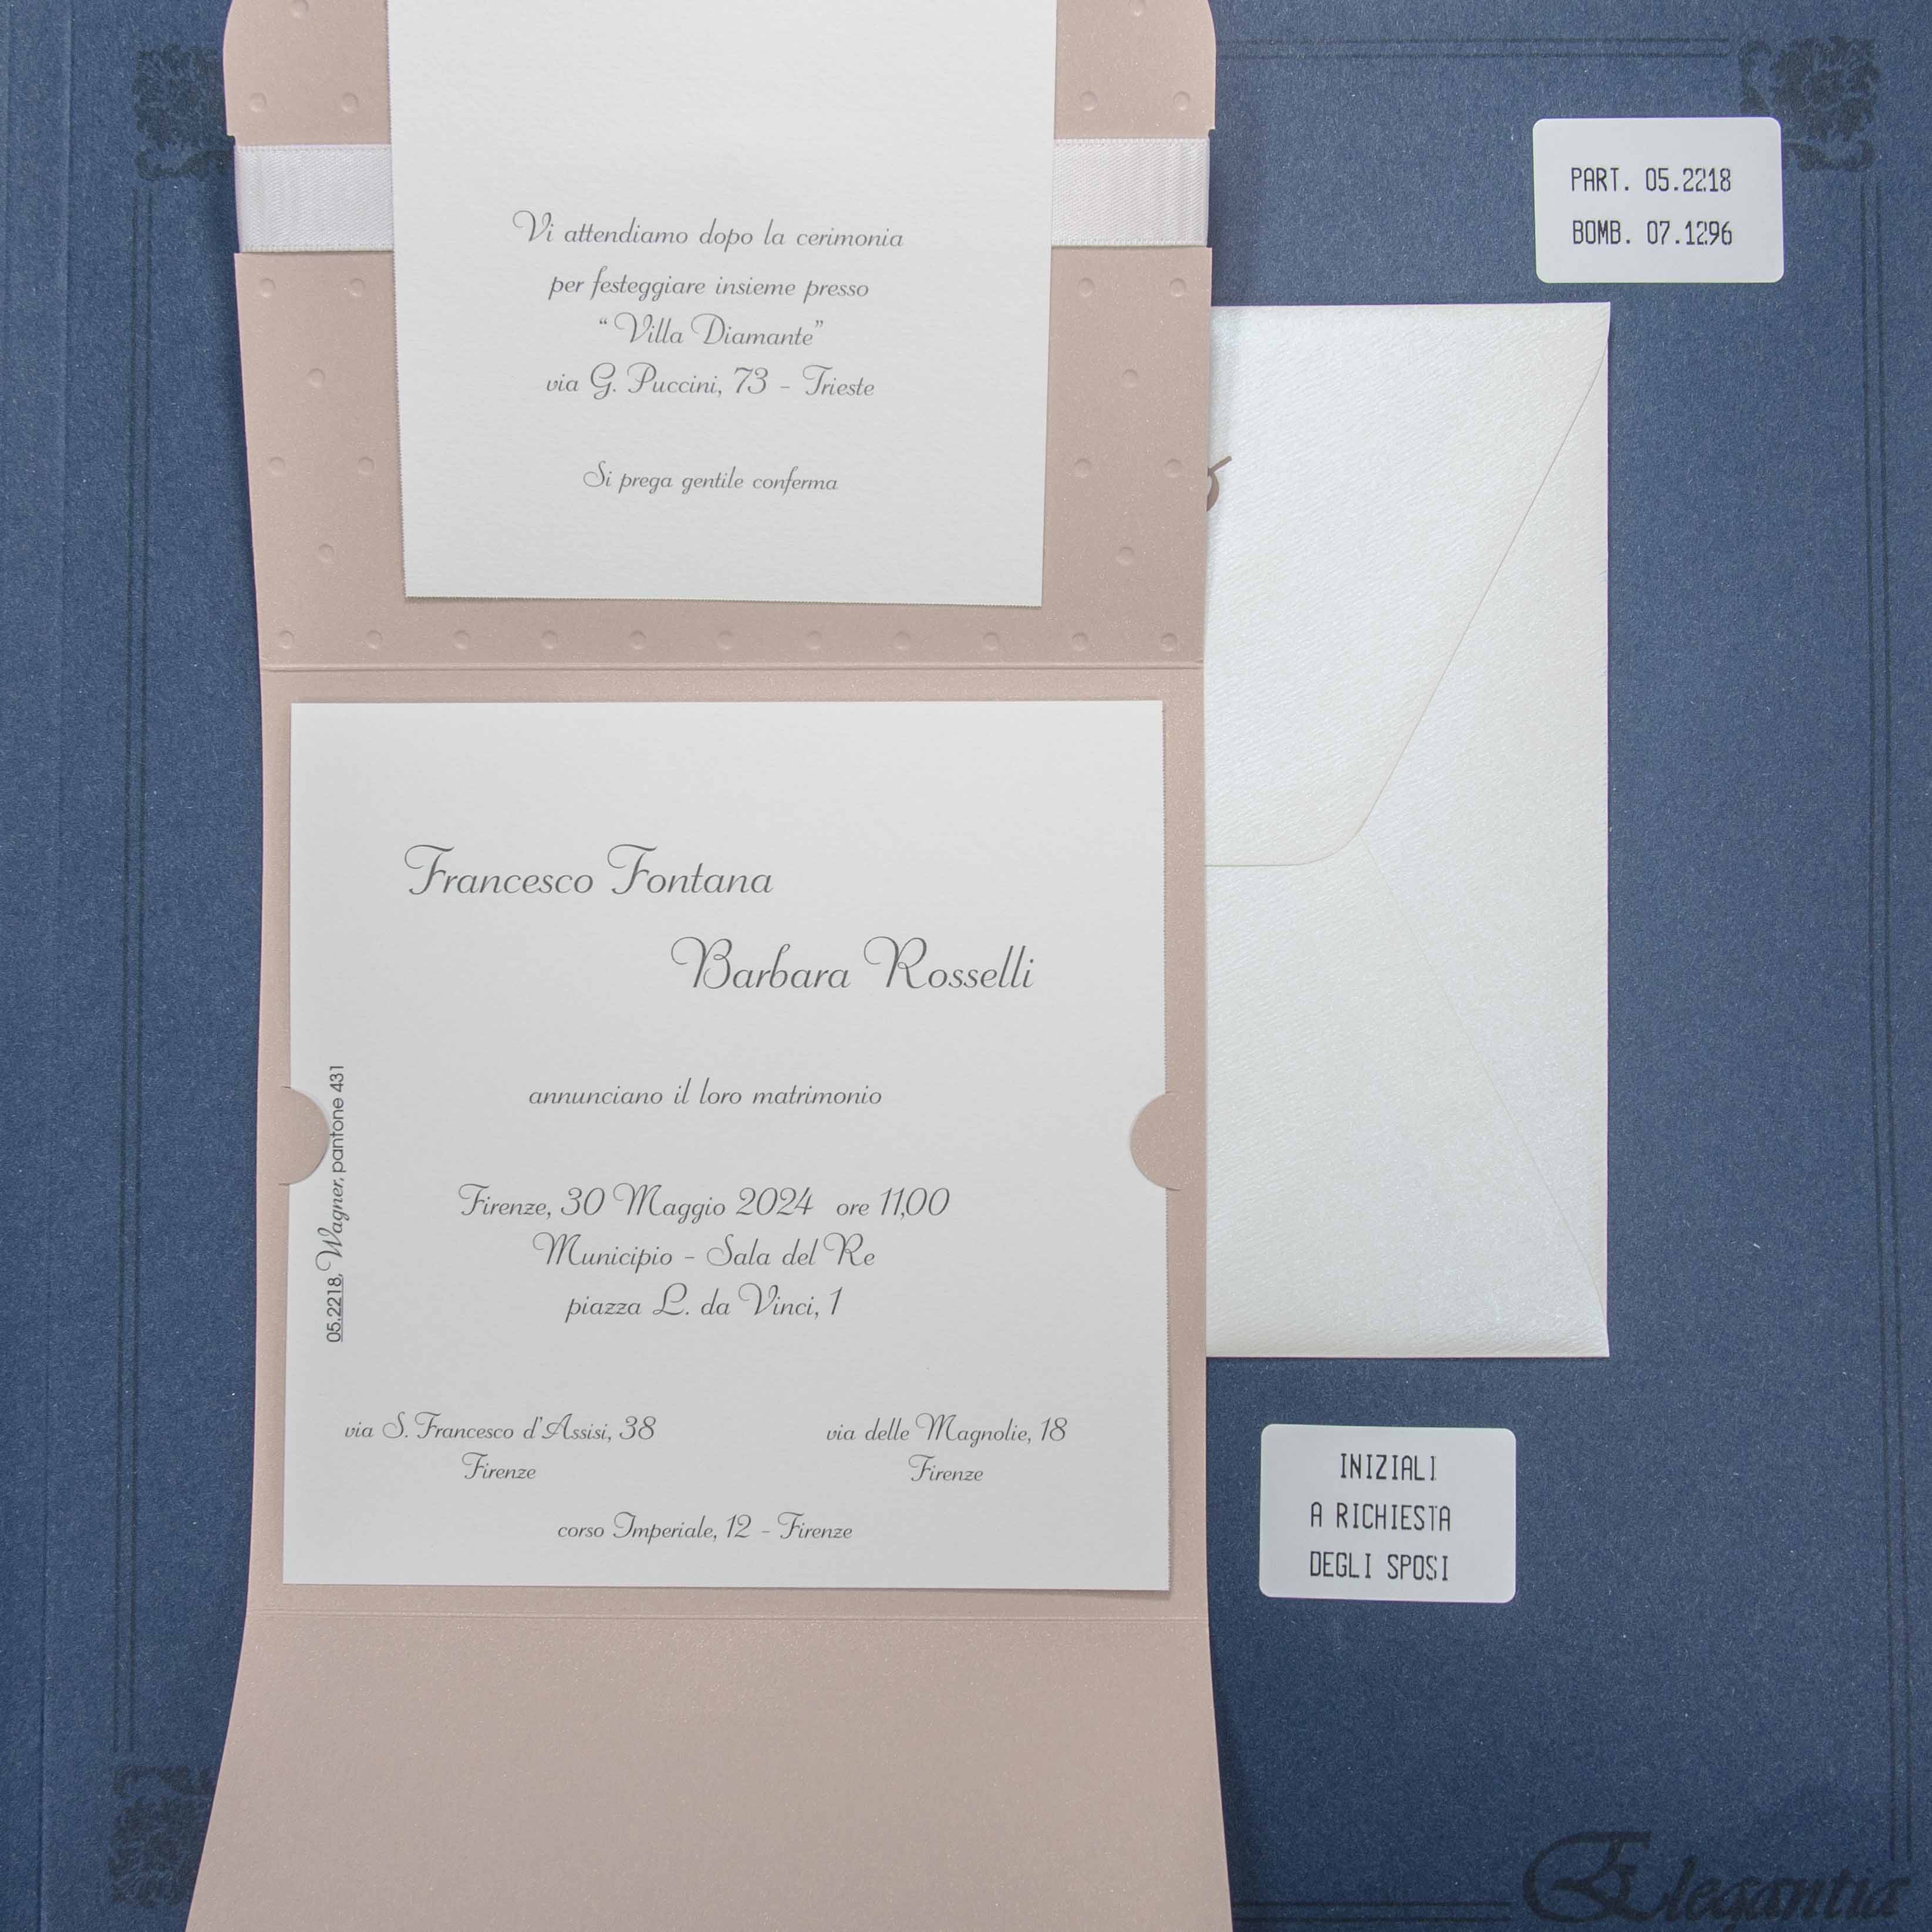 Vi attendiamo dopo la cerimonia
per festeggiare insieme presso
“Villa Diamante”
via G. Puccini, 73 – Trieste
Si prega gentile conferma
PART. 05.2218
BOMB. 07.1296
Francesco Fontana
Barbara Rosselli
annunciano il loro matrimonio
Firenze, 30 Maggio 2024 ore 11,00
Municipio – Sala del Re
piazza L. da Vinci, 1
via S. Francesco d'Assisi, 38
Firenze
via delle Magnolie, 18
Firenze
corso Imperiale, 12 – Firenze
05.2218, Wagner, pantone 431
INIZIALI
A RICHIESTA
DEGLI SPOSI
Elegantia